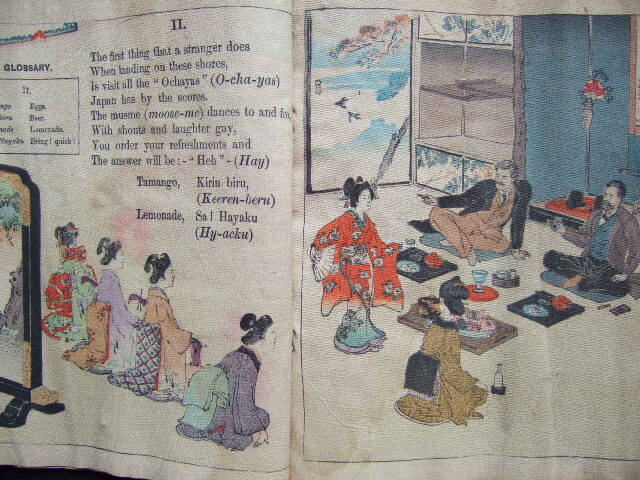 GLOSSARY.
II.
Eggs.
Beer.
Lemonade.
Hayaku Bring! quick!
II.
The first thing that a stranger does
When landing on these shores,
Is visit all the "Ochayas" (O-cha-yas)
Japan has by the scores.
The musme (moose-me) dances to and fro,
With shouts and laughter gay,
You order your refreshments and
The answer will be:- "Heh" - (Hay)
Tamango, Kirin biru,
(Keeren-beru)
Lemonade, Sa! Hayaku
(Hy-acku)